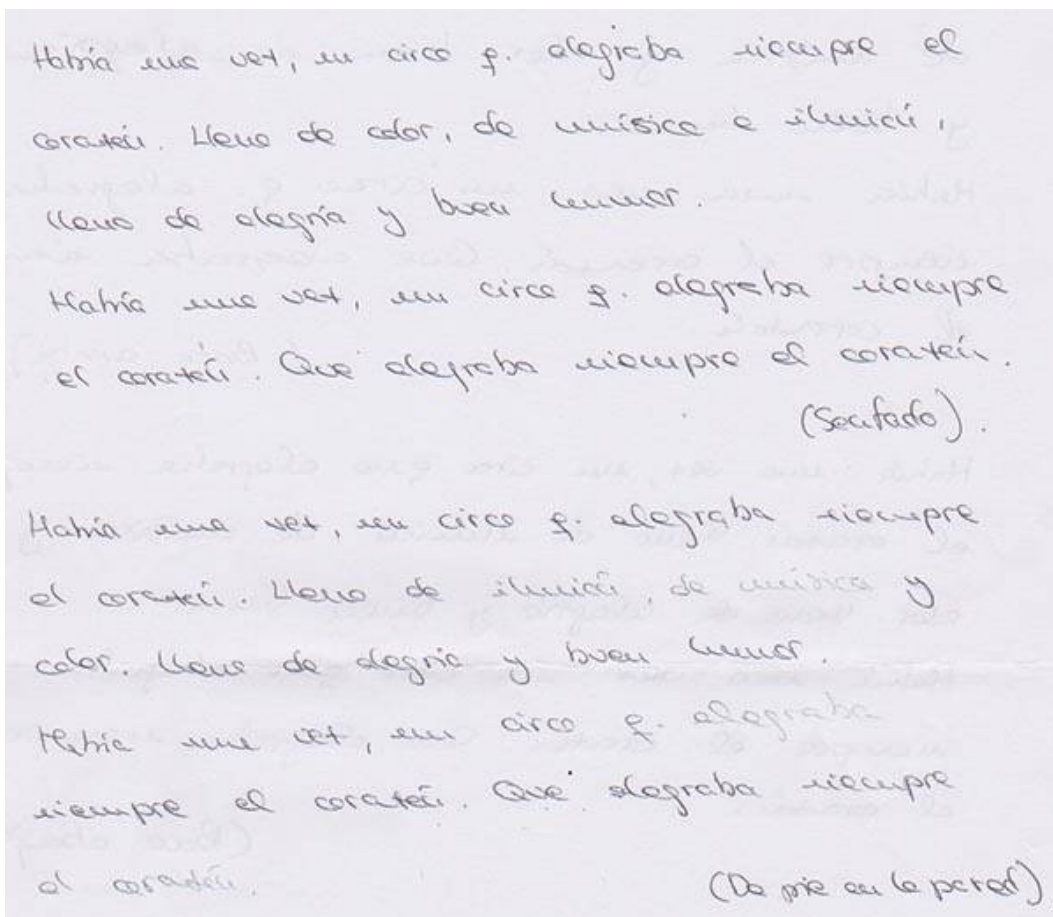 Había una vez, un circo q. alegraba siempre el
corazón. Lleno de color, de música e ilusión,
lleno de alegría y buen humor.
Había una vez, un circo q. alegraba siempre
el corazón. Que alegraba siempre el corazón.
(Sentado).
Había una vez, un circo q. alegraba siempre
el corazón. Lleno de ilusión, de música y
color. Lleno de alegría y buen humor.
Había una vez, un circo q. alegraba
siempre el corazón. Que alegraba siempre
el corazón.
(De pie en la pared)